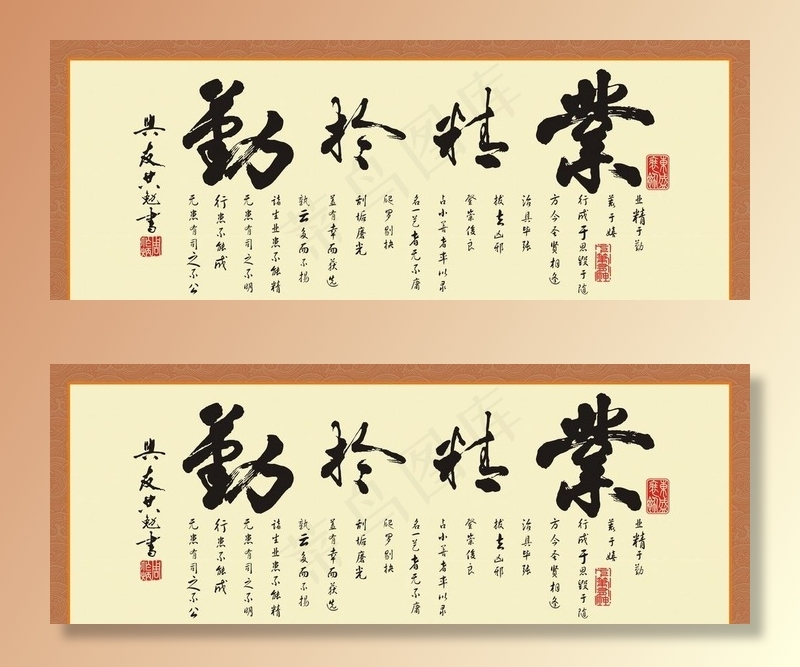 業精於勤
业精于勤
荒于嬉
行成于思毁于隨
方今圣賢相逢
治具毕張
拔去凶邪
登崇俊良
占小善者率以录
名一艺者无不庸
爬罗剔抉
刮垢磨光
蓋有幸而获选
孰云多而不揚
諸生业患不能精
无患有司之不明
行患不能成
无患有司之不公
與友共勉書
業精於勤
业精于勤
荒于嬉
行成于思毁于隨
方今圣賢相逢
治具毕張
拔去凶邪
登崇俊良
占小善者率以录
名一艺者无不庸
爬罗剔抉
刮垢磨光
蓋有幸而获选
孰云多而不揚
諸生业患不能精
无患有司之不明
行患不能成
无患有司之不公
與友共勉書